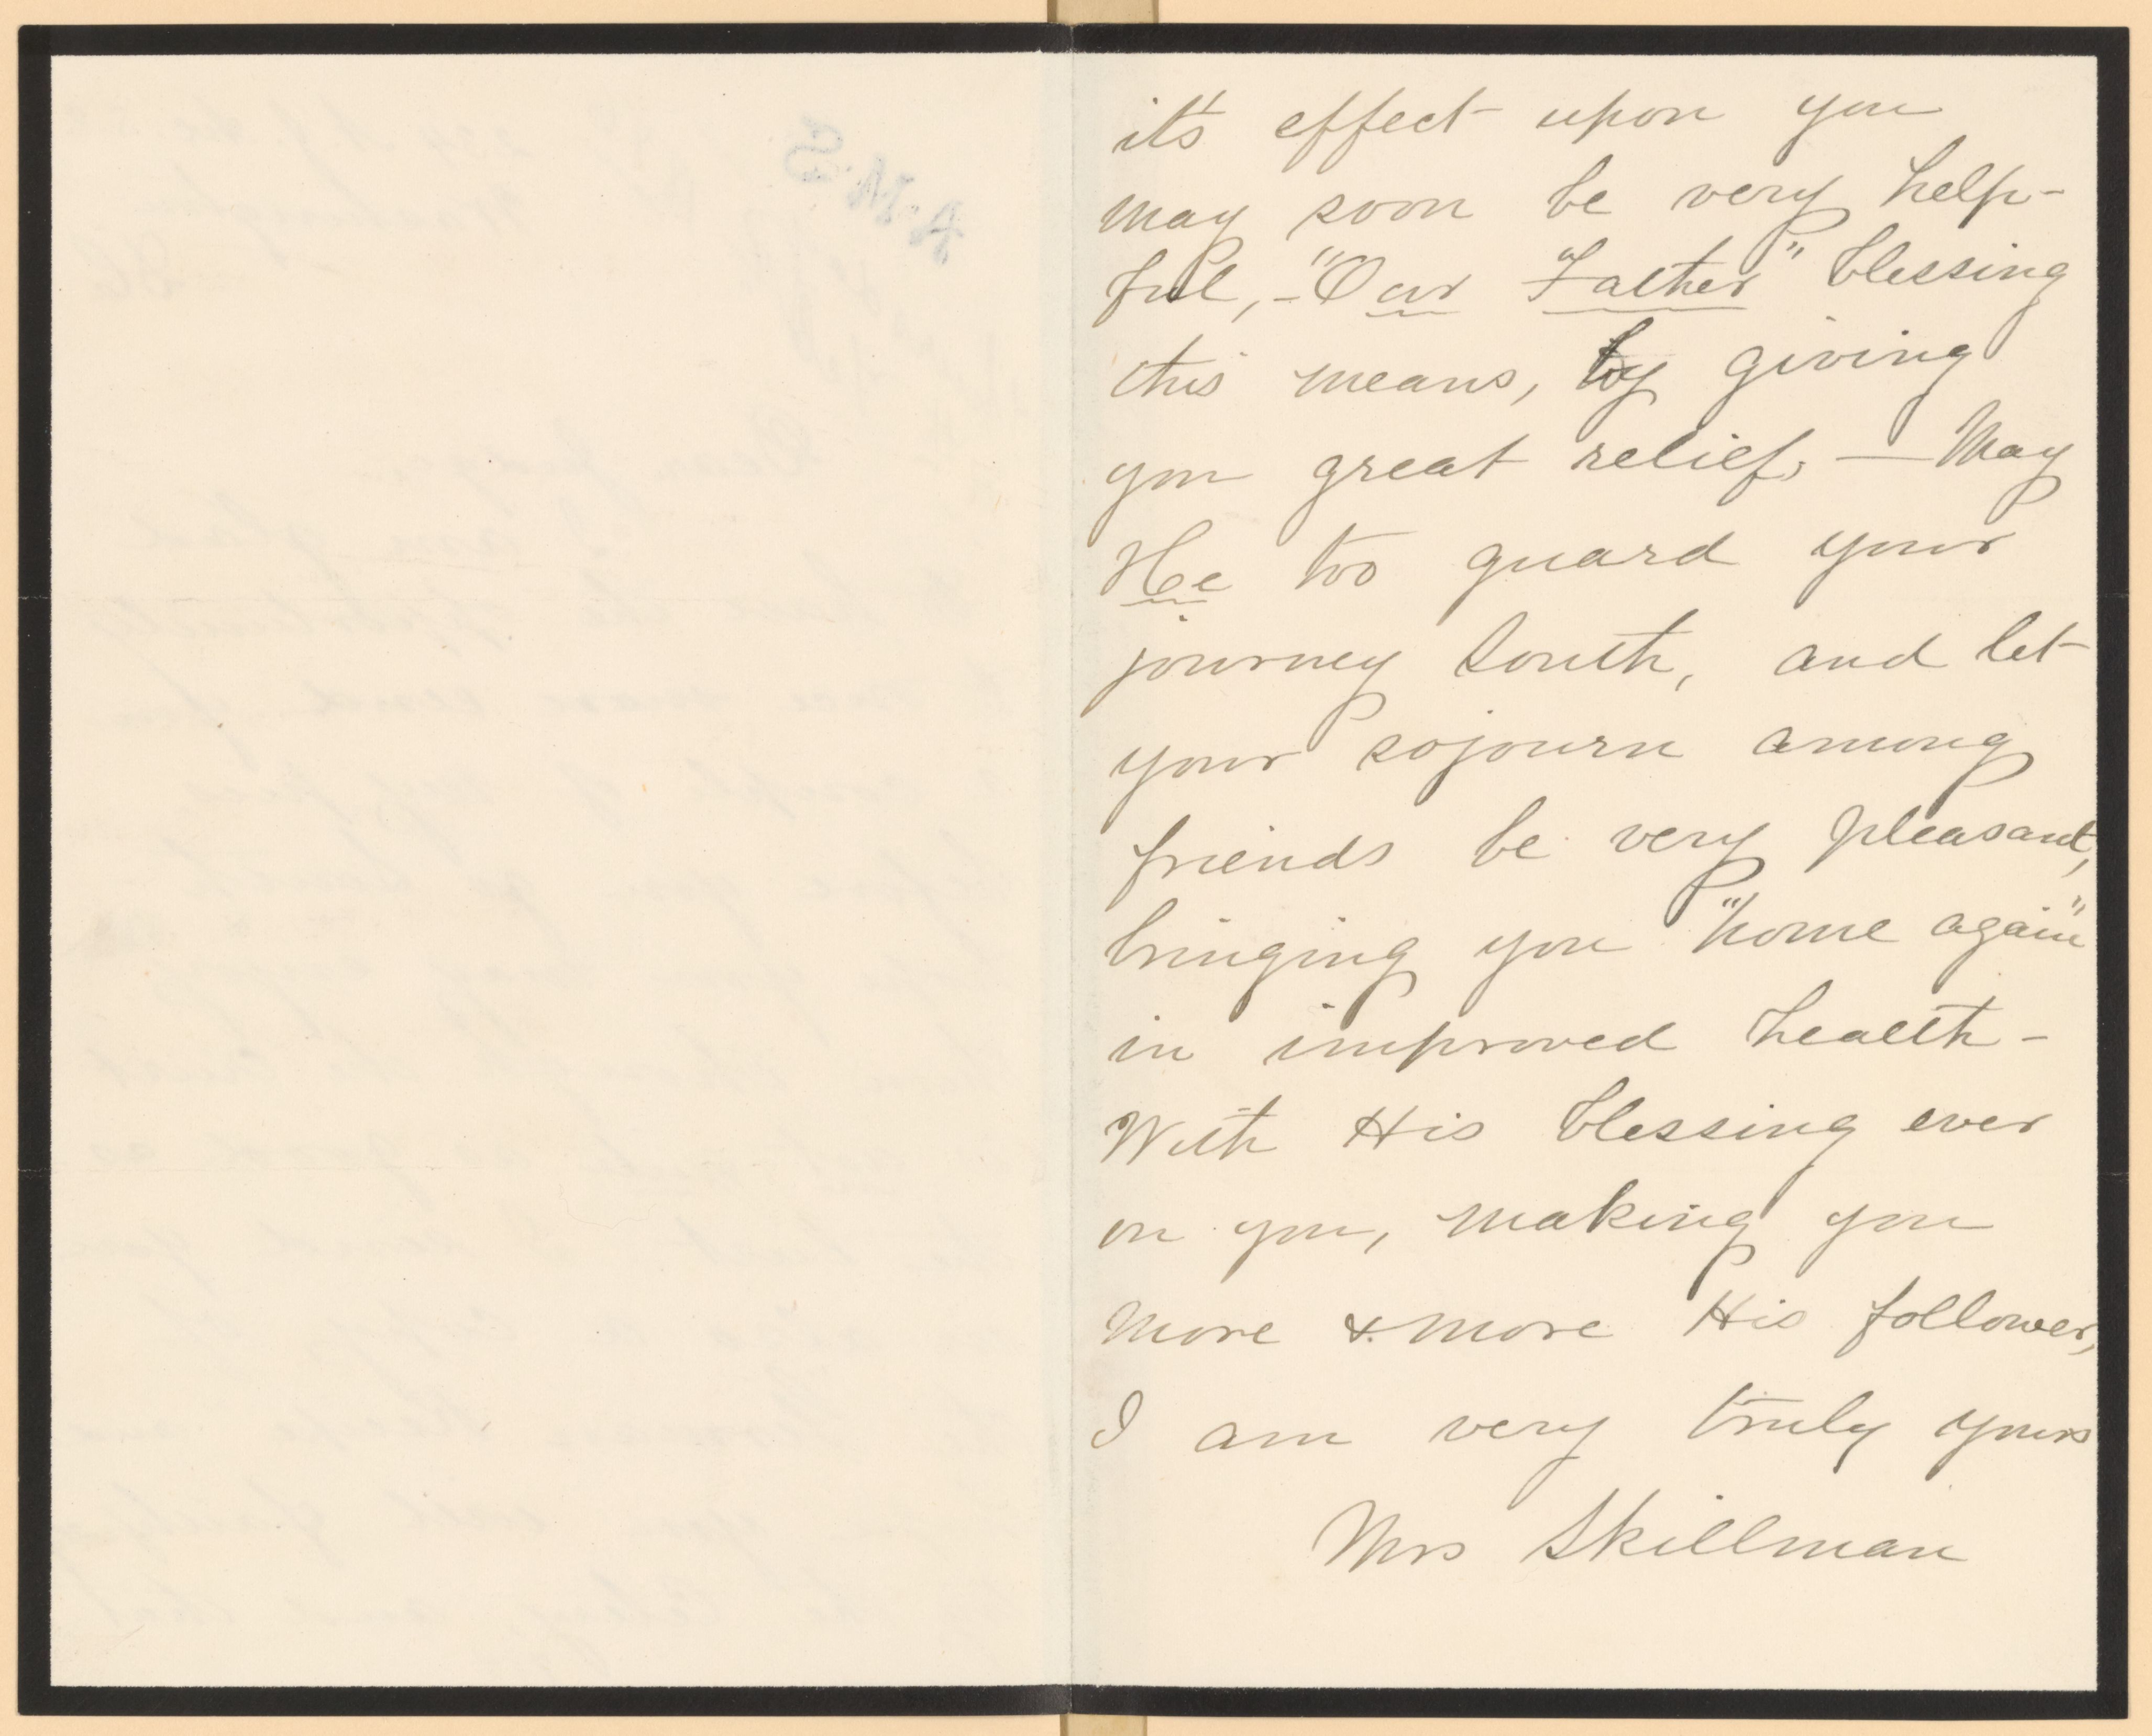 it's effect upon you
may soon be very help-
ful, - "Our Father" blessing
this means, by giving
you great relief, — May
He too guard your
journey South, and let
your sojourn among
friends be very pleasant,
bringing you "home again"
in improved health -
With His blessing ever
on you, making you
more & more His follower,
I am very truly yours
Mrs Skillman